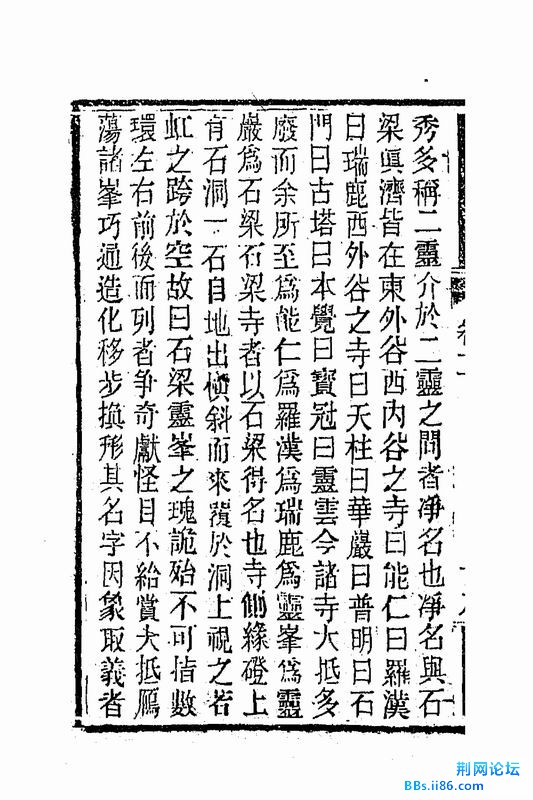 秀多稱二靈介於二靈之間者凈名也凈名與石
梁眞濟皆在東外谷西內谷之寺曰能仁曰羅漢
曰瑞鹿西外谷之寺曰天柱曰華嚴曰普明曰石
門曰古塔曰本覺曰寶冠曰靈雲今諸寺大抵多
廢而余所至爲能仁爲羅漢爲瑞鹿爲靈峯爲靈
巖爲石梁石梁寺者以石梁得名也寺側緣磴上
有石洞一石自地出傾斜而來覆於洞上視之若
虹之跨於空故曰石梁靈峯之瑰詭殆不可指數
環左右前後而列者爭奇獻怪目不給賞大抵鴈
蕩諸峯巧通造化移步換形其名字因象取義者
荆网论坛
BBs.ii86.com